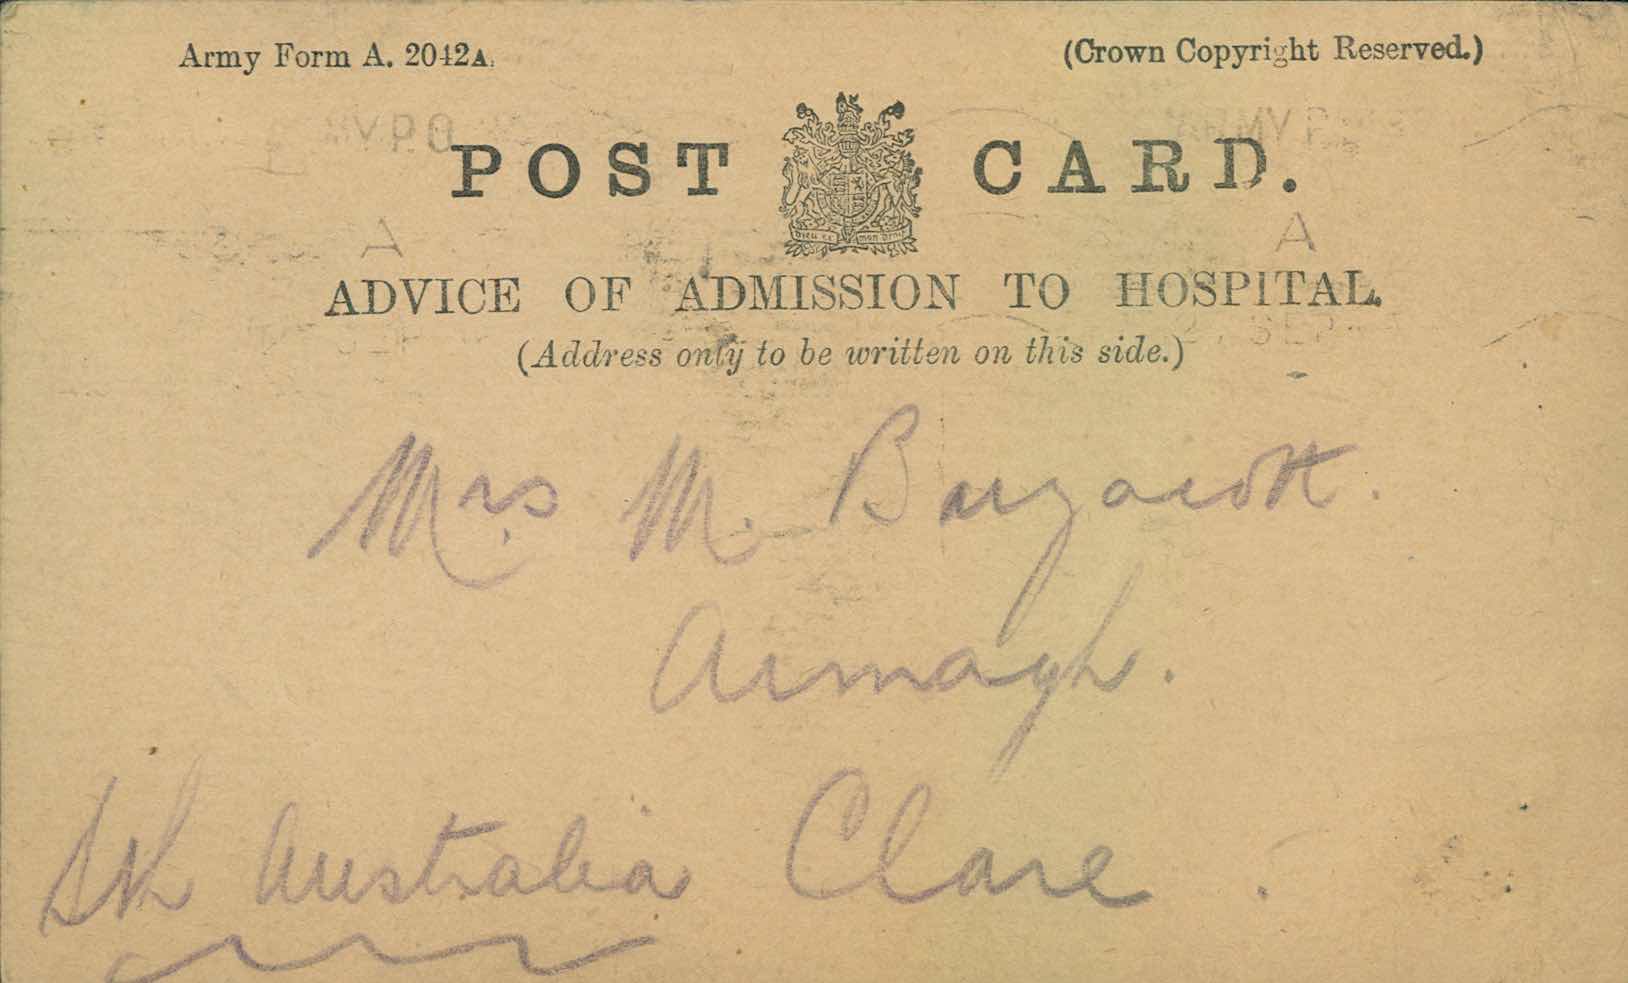 Army Form A. 2042A.
(Crown Copyright Reserved.)
POST CARD.
DIEU ET MON DROIT
ADVICE OF ADMISSION TO HOSPITAL.
(Address only to be written on this side.)
Mrs. M.
Armagh.
Clare.
Sth Australia